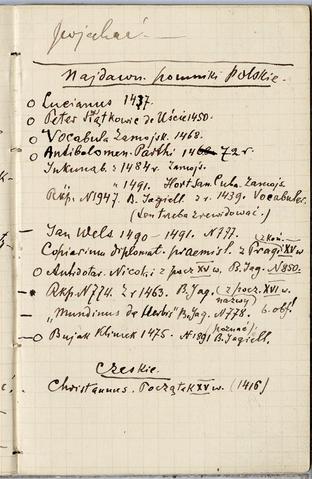 Najdawn. pomniki Polskie.
Lucianus 1437.
Peter Siątkowic de Uście 1450.
Vocabula Zamojsk. 1468.
Antibolomen. Parthi 72 r.
Inkunab. : 1484 r. Zamojs.
" 1491. Hort. San. Cuba. Zamojs
Rkp. N 1947. B. Jagiell z r. 1439. Vocabular.
(Ten trzeba zrewidować.)
Jan Wels 1490 – 1491. N 777.
Copiarium diplomat. przemisl. z Pragi XV w
Antidotar. Nicolai z pocz XV w. B. Jag. N 850.
Rkp N 774. Z r 1463. B. Jag. (z pocz. XVI w.
nazwy)
"Mundinus de Herbis" B. Jag. N 778. 6. obj.
Bujak Klimek 1475. N 1891 B. Jagiell.
Czeskie.
Christannus. Początek XV w. (1416)